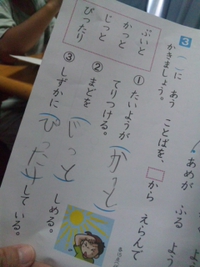 あめが ふる よう
3 ―に あう ことばを、□から えらんで
かきましょう。
ぷいと
かっと
じっと
ぴったり
① たいようが かっと
てりつける。
② まどを じっと しめる。
③ しずかに ぴったり している。